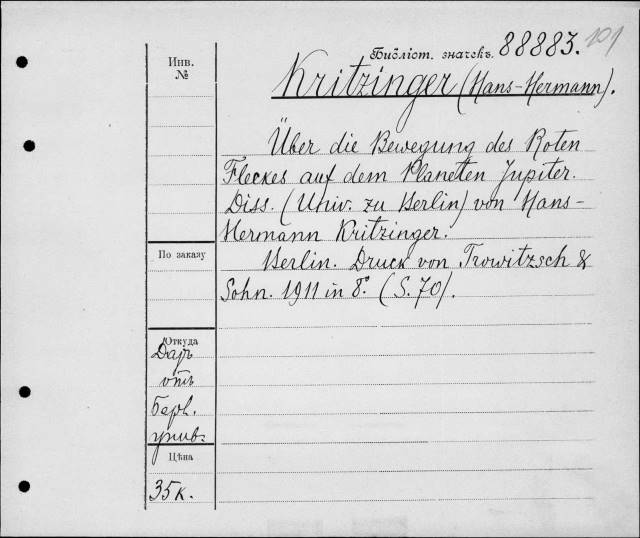 Библіот. значекъ. 88883. 101
Инв.
№
Kritzinger (Hans-Hermann).
Über die Bewegung des Roten
Fleckes auf dem Planeten Jupiter.
Diss. (Univ. zu Berlin) von Hans-
Hermann Kritzinger.
По заказу
Berlin. Druck von Trowitzsch &
Sohn. 1911 in 8°. (S. 70).
Откуда
Даръ
отъ
Берл.
унив.
Цѣна
35к.